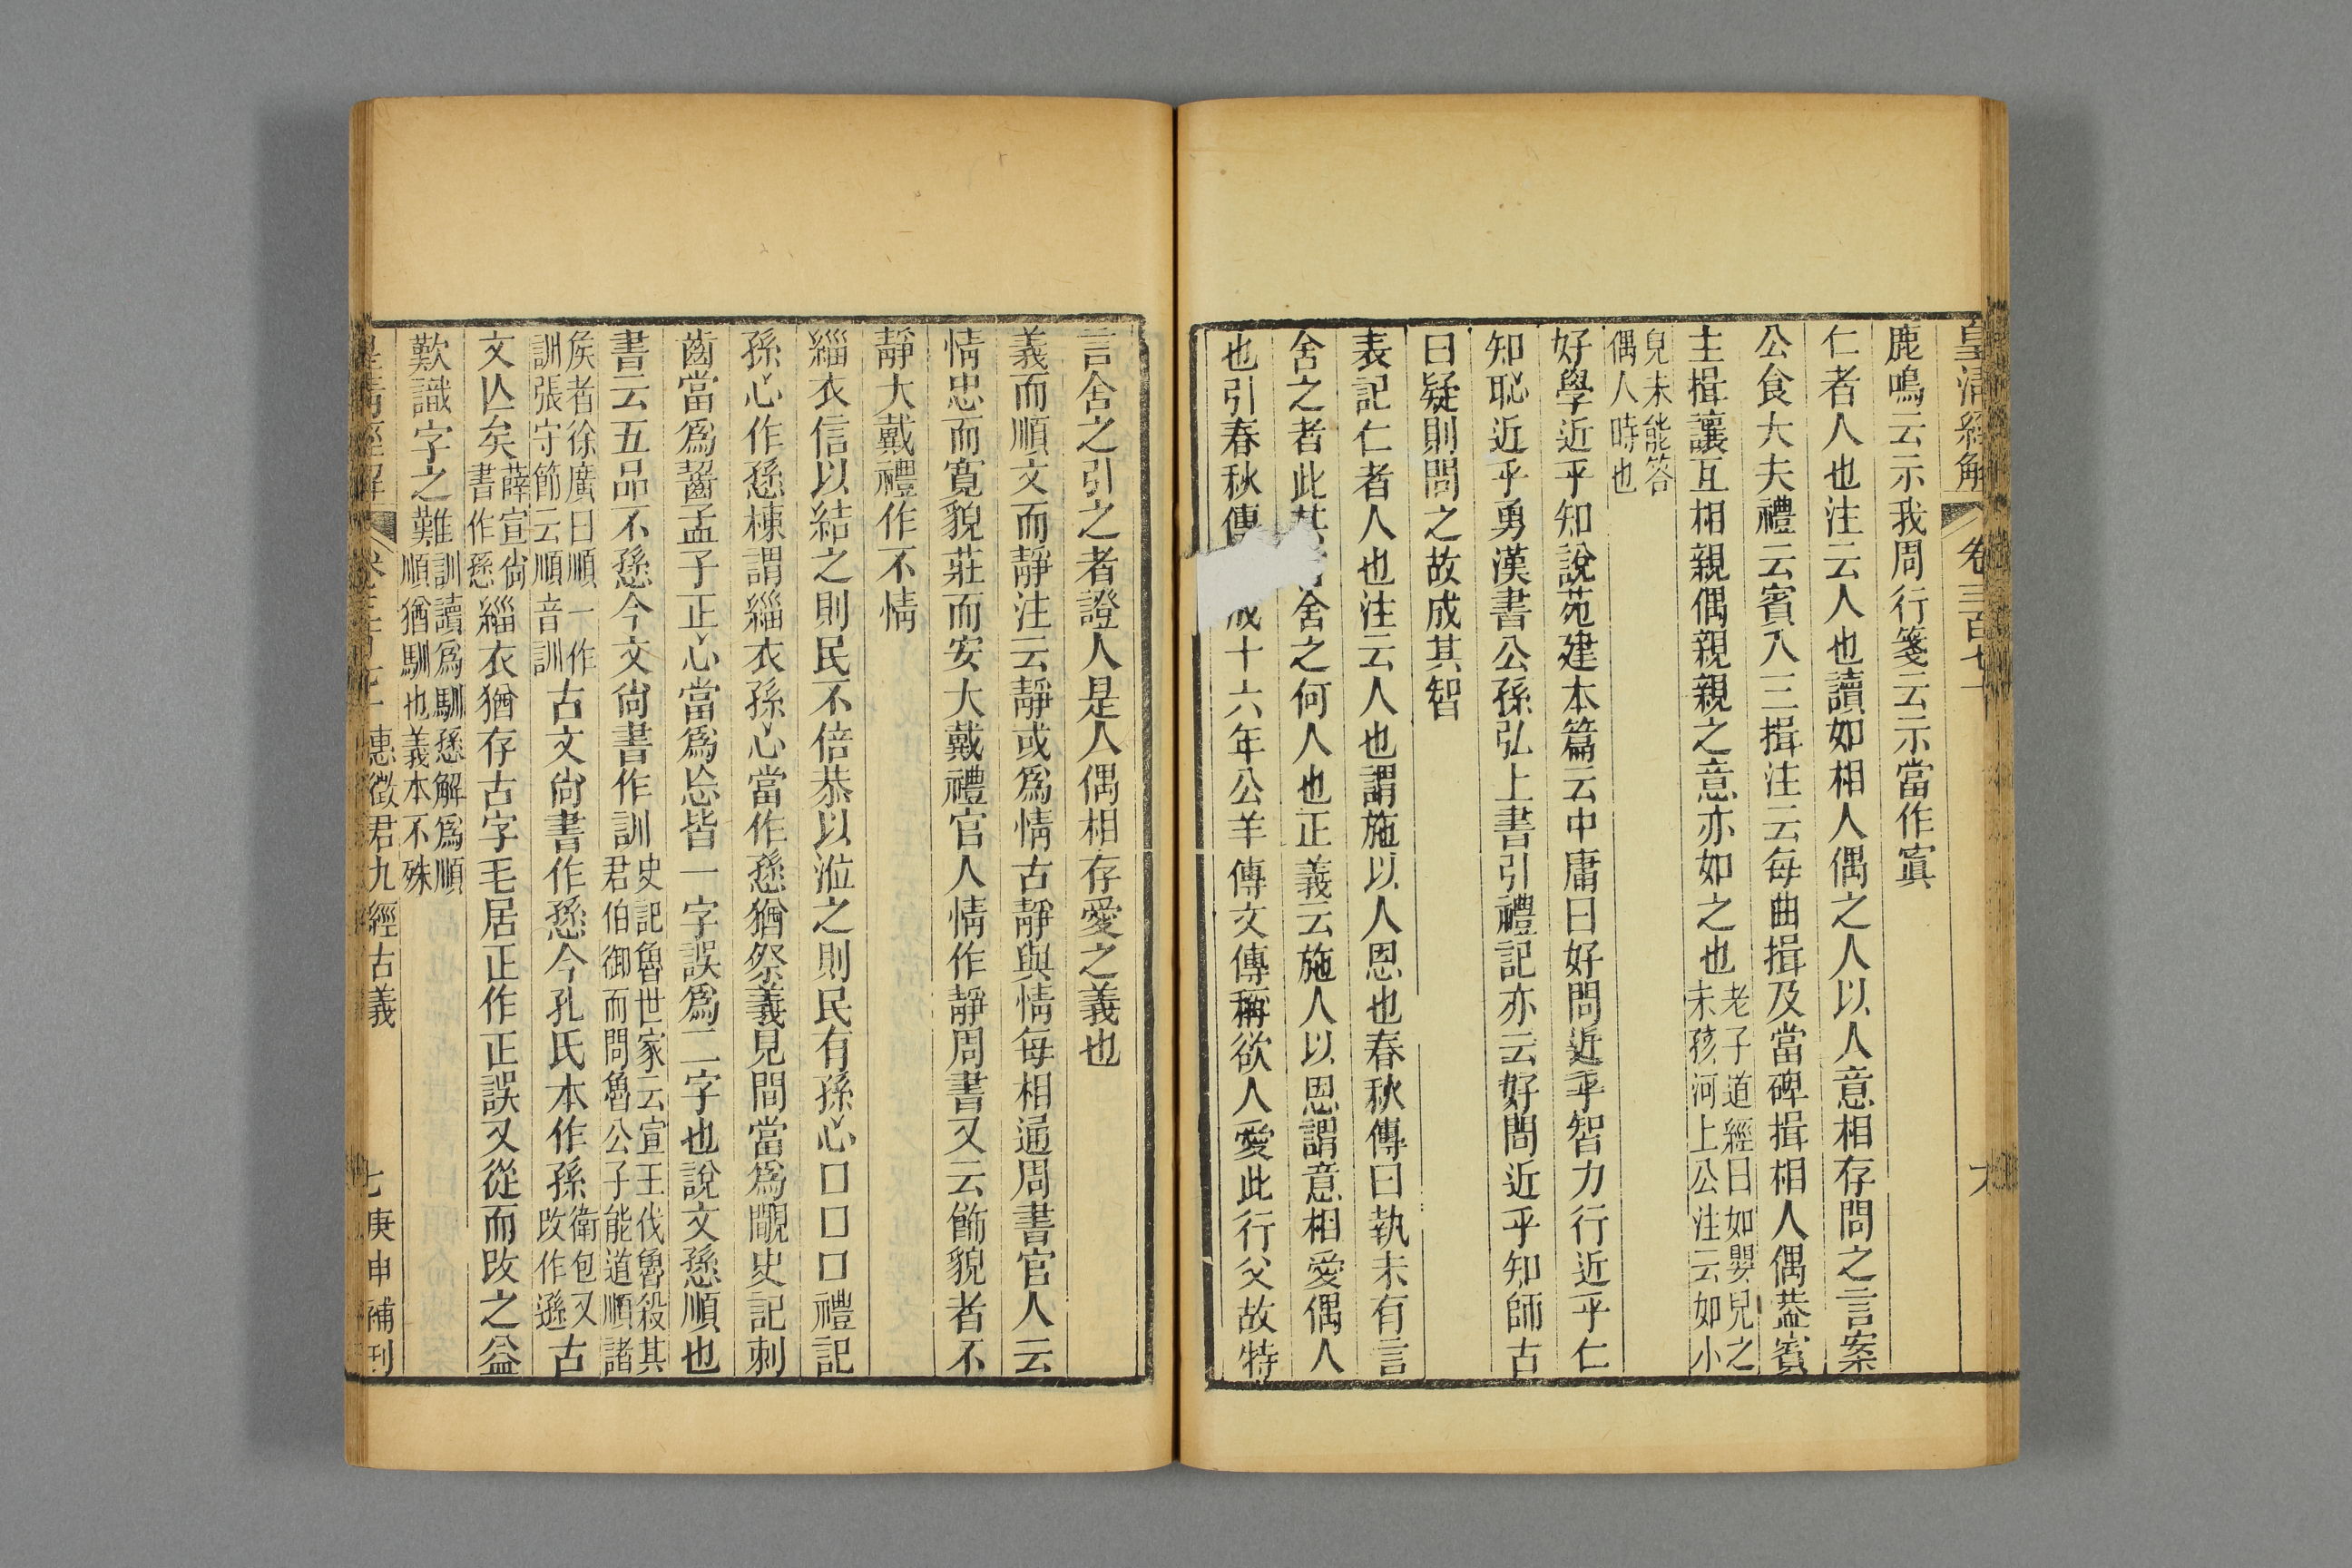 皇清經解 卷三百七十
鹿鳴云示我周行箋云示當作寘
仁者人也注云人也讀如相人偶之人以人意相存問之言案
公食大夫禮云賓入三揖注云每曲揖及當碑揖相人偶恭賓
主揖讓互相親偶親親之意亦如之也老子道經曰如嬰兒之未孩河上公注云如小
兒未能答偶人時也
好學近乎知說苑建本篇云中庸曰好問近乎智力行近乎仁
知恥近乎勇漢書公孫弘上書引禮記亦云好問近乎知師古
曰疑則問之故成其智
表記仁者人也注云人也謂施以人恩也春秋傳曰執未有言
舍之者此其言舍之何人也正義云施人以恩謂意相愛偶人
也引春秋傳成十六年公羊傳文傳稱欲人愛此行父故特
言舍之引之者證人是人偶相存愛之義也
義而順文而靜注云靜或爲情古靜與情每相通周書官人云
情忠而寬貌莊而安大戴禮官人情作靜周書又云飾貌者不
靜大戴禮作不情
緇衣信以結之則民不倍恭以涖之則民有孫心口口口禮記
孫心作愻棟謂緇衣孫心當作愻猶祭義見間當爲覸史記刺
齒當爲齧孟子正心當爲忘皆一字誤爲二字也說文愻順也
書云五品不愻今文尙書作訓史記魯世家云宣王伐魯殺其君伯御而問魯公子能道順諸
矦者徐廣曰順一作訓張守節云順音訓古文尙書作愻今孔氏本作孫衛包又改作遜古
文亾矣薛宣尙書作愻緇衣猶存古字毛居正作正誤又從而改之益
歎識字之難訓讀爲馴愻解爲順順猶馴也義本不殊
皇清經解 惠徵君九經古義 七庚申補刊